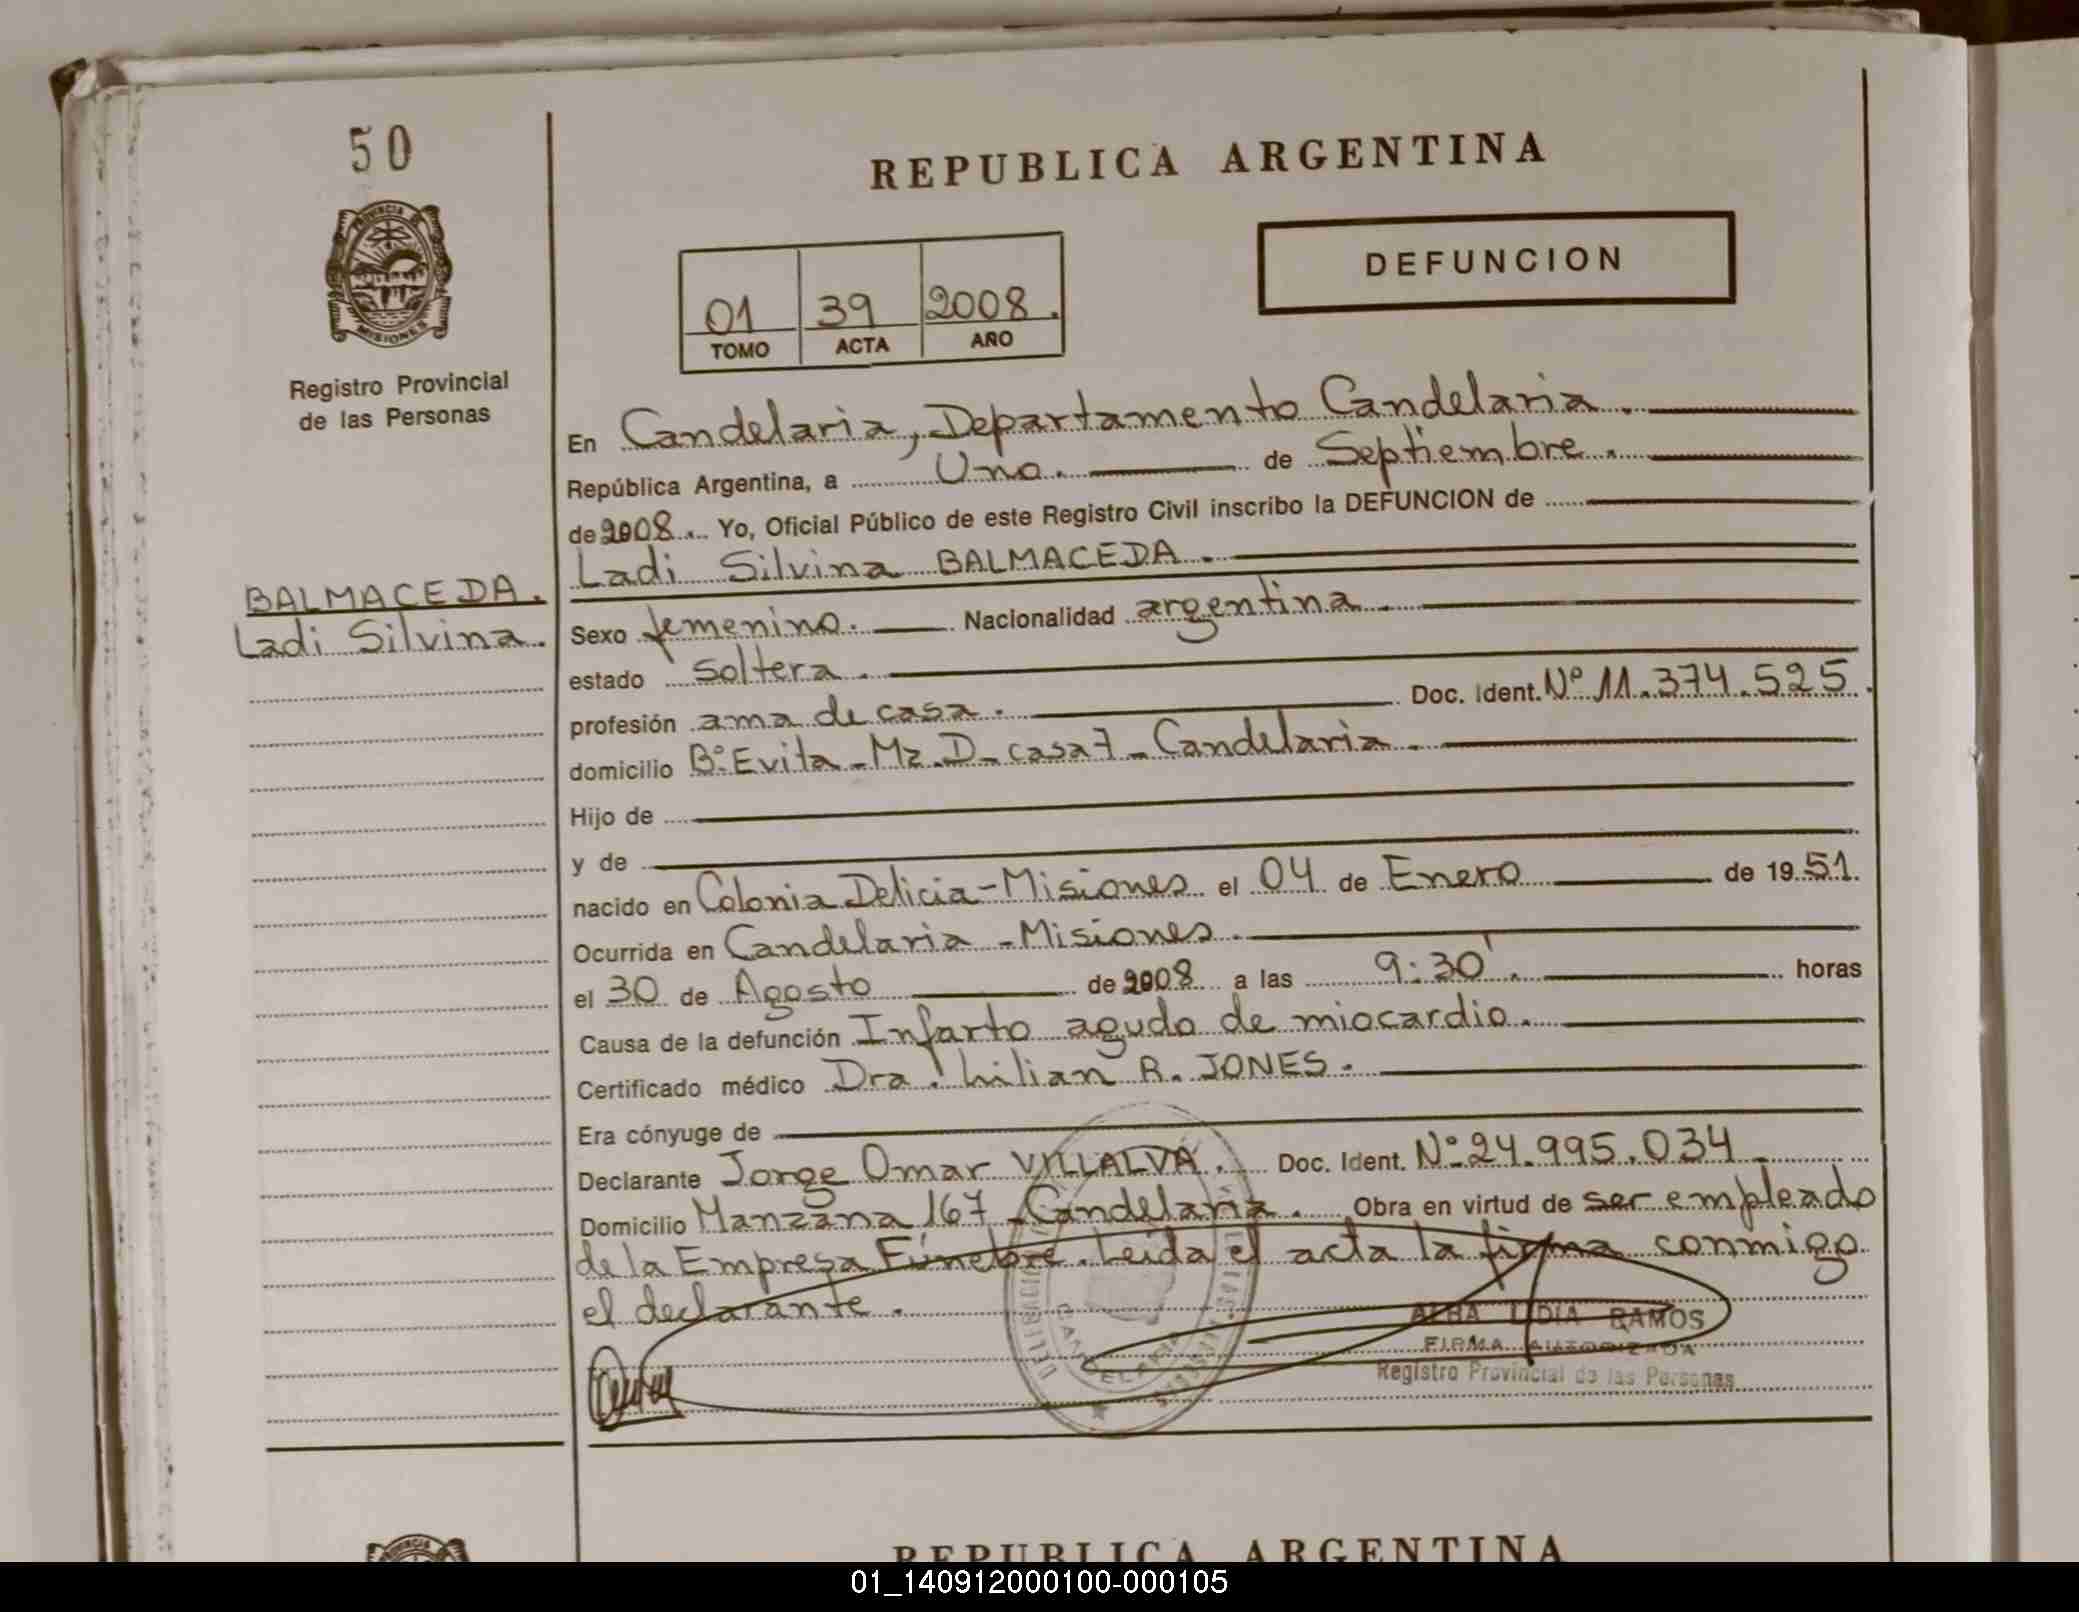 50
PROVINCIA DE
MISIONES
Registro Provincial
de las Personas
BALMACEDA.
Ladi Silvina.
REPUBLICA ARGENTINA
01 39 2008.
TOMO ACTA AÑO
DEFUNCION
En Candelaria, Departamento Candelaria.
República Argentina, a Uno. de Septiembre.
de 2008. Yo, Oficial Público de este Registro Civil inscribo la DEFUNCION de
Ladi Silvina BALMACEDA.
Sexo femenino. Nacionalidad argentina.
estado soltera.
profesión ama de casa. Doc. Ident. Nº 11.374.525.
domicilio Bº Evita - Mz. D - casa 7 - Candelaria.
Hijo de
y de
nacido en Colonia Delicia - Misiones el 04 de Enero de 19 51.
Ocurrida en Candelaria - Misiones.
el 30 de Agosto de 2008 a las 9:30'. horas
Causa de la defunción Infarto agudo de miocardio.
Certificado médico Dra. Lilian R. JONES.
Era cónyuge de
Declarante Jorge Omar VILLALVA. Doc. Ident. Nº 24.995.034
Domicilio Manzana 167 - Candelaria. Obra en virtud de ser empleado
de la Empresa Fúnebre. Leída el acta la firma conmigo
el declarante.
CANDELARIA
ALBA LIDIA RAMOS
FIRMA AUTORIZADA
Registro Provincial de las Personas
REPUBLICA ARGENTINA
PROVINCIA
01_140912000100-000105